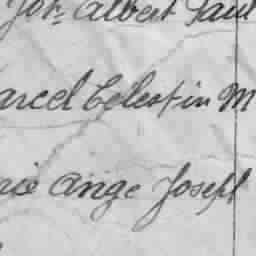 Joh. Albert Paul
arcel Celestin M
rie Ange Joseph